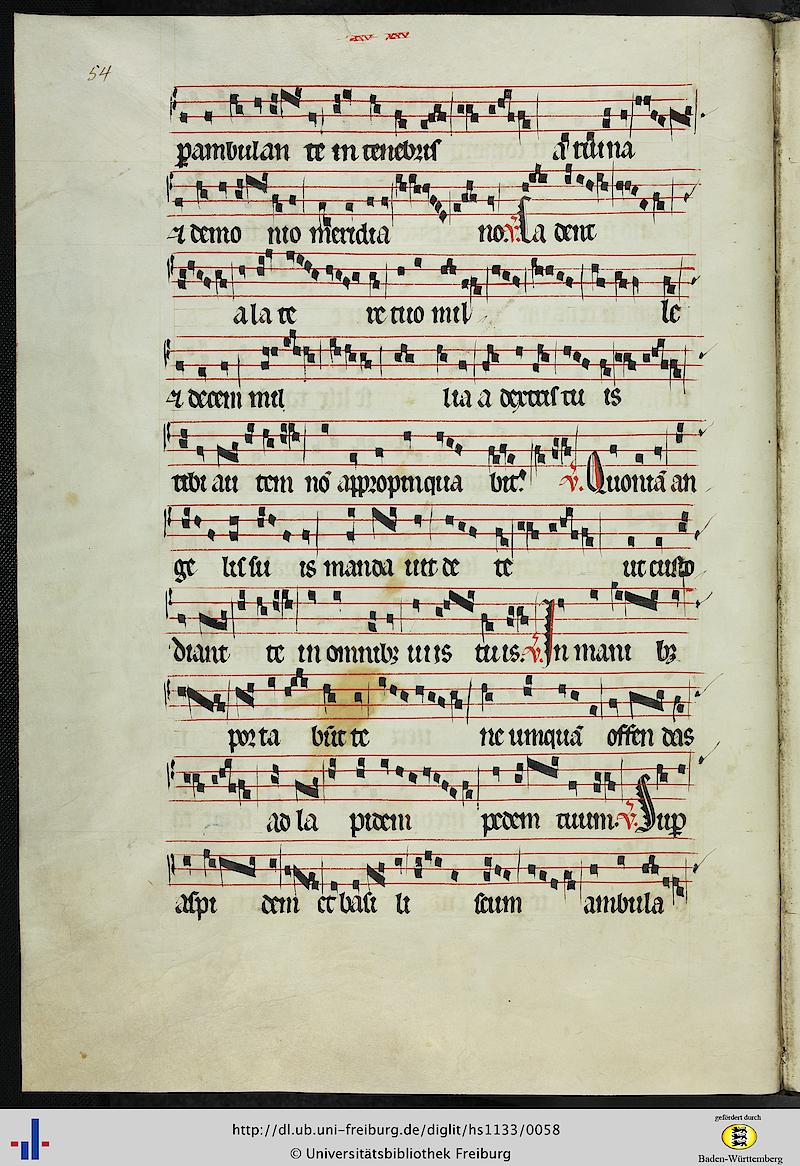 xv xxv
54
ꝑambulan te in tenebris a ruina
⁊ demo nio meridia no. ℣. Ca dent
a la te re tuo mil le
⁊ decem mil lia a dextris tu is
tibi au tem nō appropinqua bit. ℣. Quoniā an
ge lis su is manda uit de te ut custo
diant te in omnibꝫ uiis tuis. ℣. In mani bꝫ
porta būt te ne umquā offen das
ad la pidem pedem tuum. ℣. Suꝑ
aspi dem et basi li scum ambula
http://dl.ub.uni-freiburg.de/diglit/hs1133/0058
© Universitätsbibliothek Freiburg
gefördert durch
Baden-Württemberg